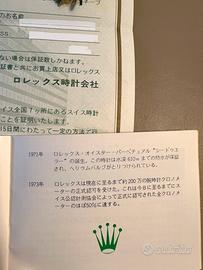 のお名前
ない場合は保証致しかねます。
証書と共にお買上店又はロレックス
ロレックス時計会社
イス全国7ヶ所にあるスイス時計
ことを証明します。
5日間にわたって一定の方法で行
1971年 ロレックス・オイスター・パーペチュアル“シードゥエ
ラー”の誕生。この時計は水深610mまでの防水が保証
され、ヘリウムバルブがとりつけられている。
1973年 ロレックスは現在に至るまで約200万の腕時計クロノメ
ーターの正式認可を受けた。これは今日に至るまでにス
イス公認計測協会によって正式に認可された全クロノメ
ーターのほぼ50%に達する。
subito